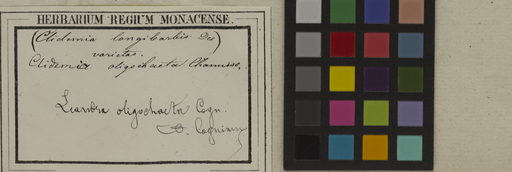 HERBARIUM REGIUM MONACENSE.
(Clidemia longibarbis DC)
varietas.
Clidemia oligochaeta Chamisso.
Leandra oligochaeta Cogn.
A. Cogniaux